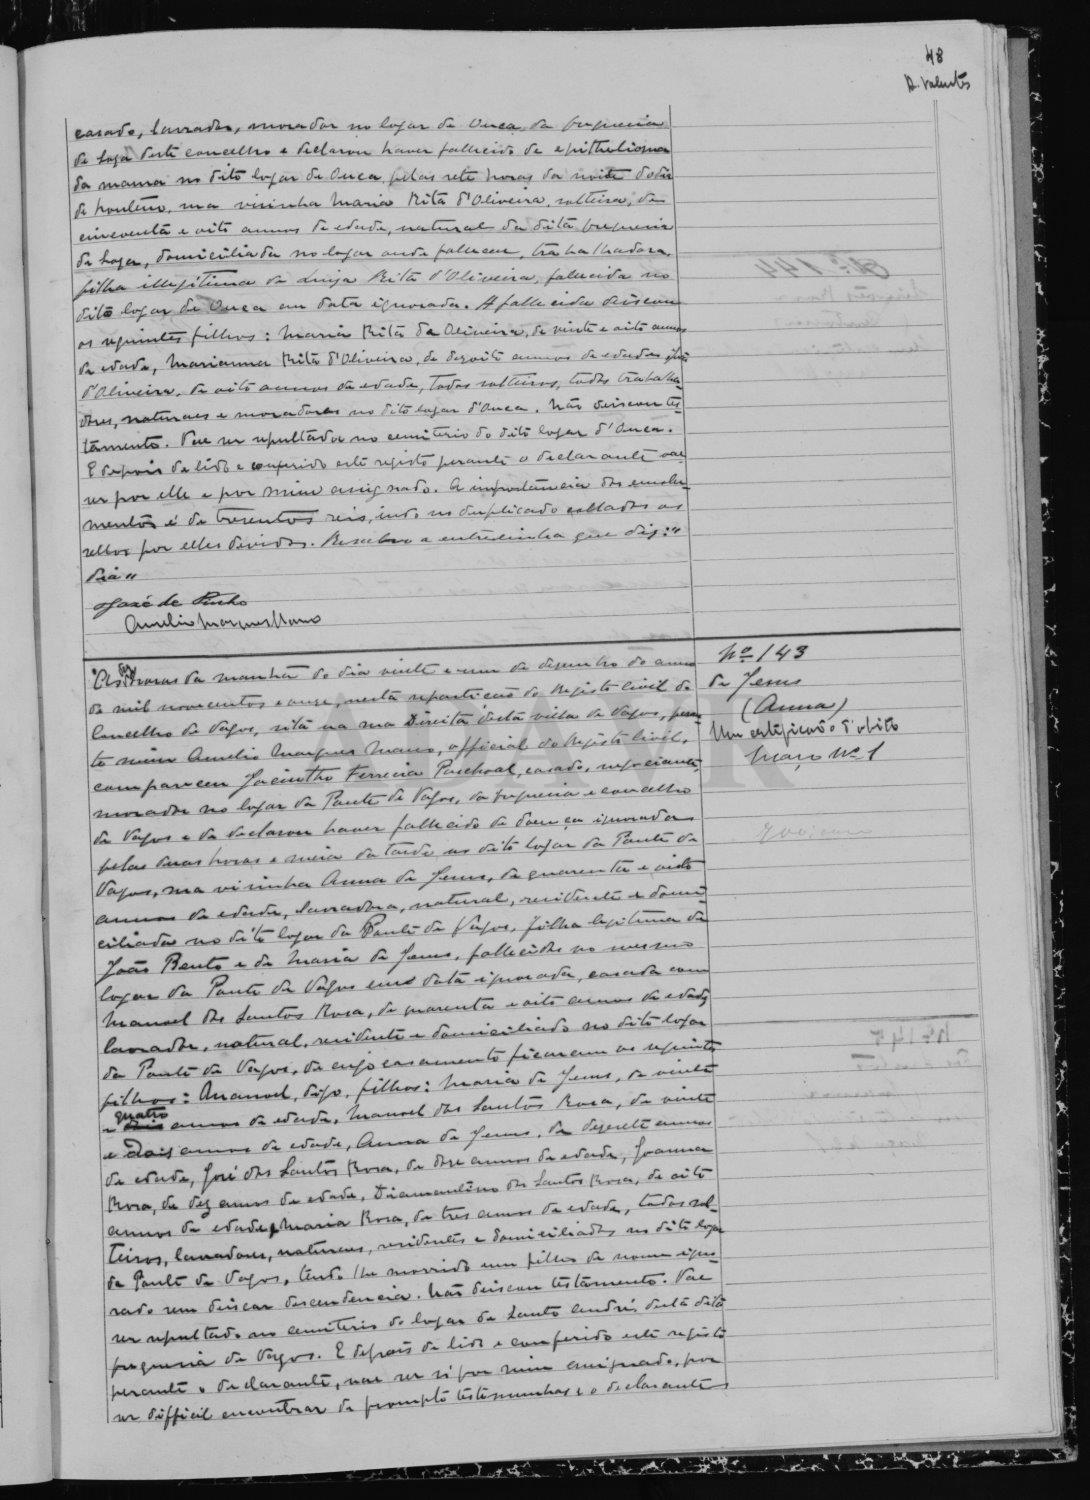 48
A. Valentes
casado, lavrador, morador no logar de Ouca, da freguezia
de Soza deste concelho e declarou haver fallecido de epithelioma
da mama no dito logar de Ouca, pelas sete horas da noite do dia
de hontem, sua visinha Maria Rita d'Oliveira, solteira, de
cincoenta e oito annos de edade, natural da dita freguezia
de Soza, domiciliada no logar onde falleceu, trabalhadora,
filha illegitima de Luiza Rita d'Oliveira, fallecida no
dito logar de Ouca em data ignorada. A fallecida deixou
os seguintes filhos: Maria Rita de Oliveira, de vinte e oito annos
de edade, Marianna Rita d'Oliveira, de dezoito annos de edade e
d'Oliveira, de oito annos de edade, todos solteiros, todos trabalha-
dores, naturaes e moradores no dito logar d'Ouca. Não deixou tes-
tamento. Vae ser sepultada no cemiterio do dito logar d'Ouca.
E depois de lido e conferido este registo perante o declarante vae
ser por elle e por mim assignado. A importancia dos emolu-
mentos é de tresentos reis, indo no duplicado collados os
sellos por elles devidos. Resalvo a entrelinha que diz: "
dia"
José de Pinho
Aurelio Marques Mano
Nº 143
de Jesus
(Anna)
Um certificado d'obito
Março Nº 1
Nº 144
Nº 145
Ás dez horas da manhã do dia vinte e um de dezembro do anno
de mil novecentos e onze, nesta repartição do Registo Civil do
Concelho de Vagos, sita na rua Direita desta villa de Vagos, peran-
te mim Aurelio Marques Mano, official do Registo Civil,
compareceu Jacintho Ferreira Paschoal, casado, negociante,
morador no logar da Ponte de Vagos, da freguezia e concelho
de Vagos e declarou haver fallecido de doença ignorada
pelas duas horas e meia da tarde no dito logar da Ponte de
Vagos, sua visinha Anna de Jesus, de quarenta e oito
annos de edade, lavradora, natural, residente e domi-
ciliada no dito logar da Ponte de Vagos, filha legitima de
João Bento e de Maria de Jesus, fallecidos no mesmo
logar da Ponte de Vagos em data ignorada, casada com
Manoel dos Santos Rosa, de quarenta e oito annos de edade,
lavrador, natural, residente e domiciliado no dito logar
da Ponte de Vagos, de cujo casamento ficaram os seguintes
filhos: Manoel, digo, filhos: Maria de Jesus, de vinte
e quatro annos de edade, Manoel dos Santos Rosa, de vinte
e dois annos de edade, Anna de Jesus, de dezesete annos
de edade, José dos Santos Rosa, de doze annos de edade, Joanna
Rosa, de dez annos de edade, Diamantino dos Santos Rosa, de oito
annos de edade, Maria Rosa, de tres annos de edade, todos sol-
teiros, lavradores, naturaes, residentes e domiciliados no dito logar
da Ponte de Vagos, tendo lhe morrido um filho de nome igno-
rado sem deixar descendencia. Não deixou testamento. Vae
ser sepultado no cemiterio do logar de Santo André, desta dita
freguezia de Vagos. E depois de lido e conferido este registo
perante o declarante, vae ser só por mim assignado, por
ser difficil encontrar de prompto testemunhas e o declarante